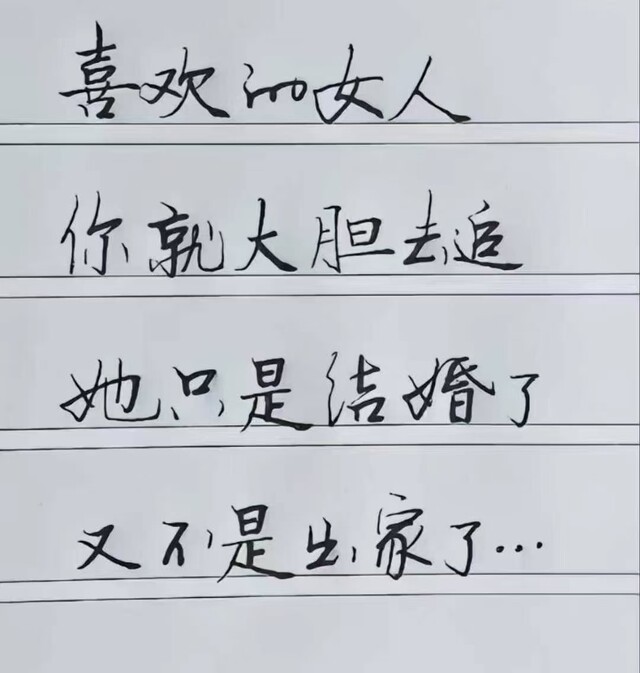 喜欢的女人
你就大胆去追
她只是结婚了
又不是出家了…